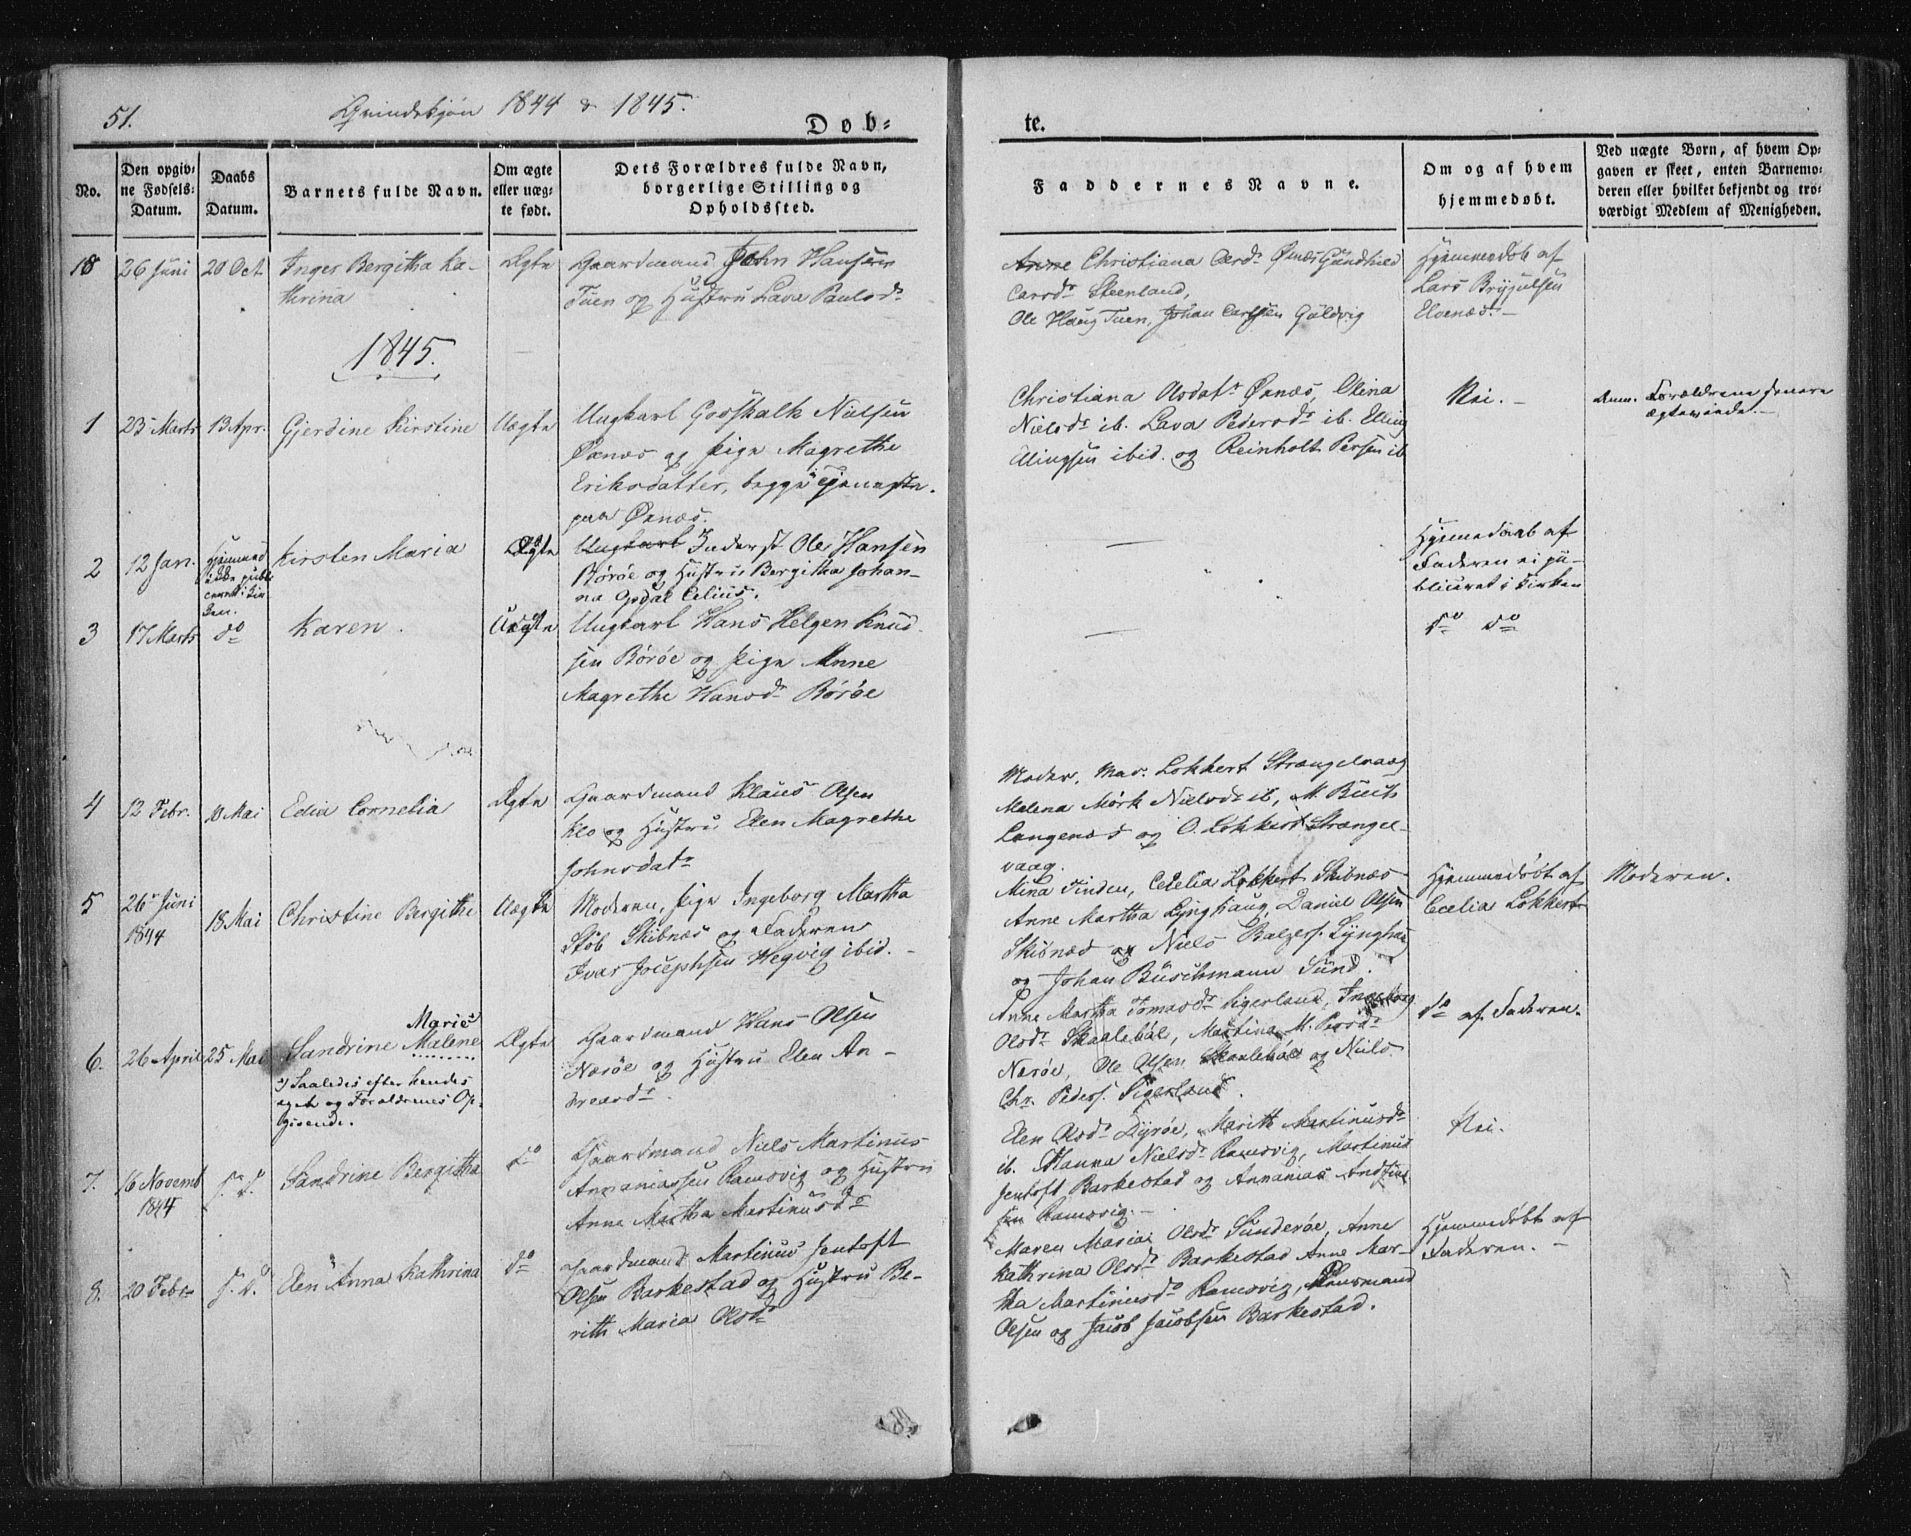 51.
Qvindekjøn 1844 & 1845.
Døb-
te.
No.
Den opgiv-
ne Fødsels-
Datum.
Daabs
Datum.
Barnets fulde Navn.
Om ægte
eller uæg-
te født.
Dets Forældres fulde Navn,
borgerlige Stilling og
Opholdssted.
Faddernes Navne.
Om og af hvem
hjemmedøbt.
Ved uægte Børn, af hvem Op-
gaven er skeet, enten Barnemo-
deren eller hvilket bekjendt og tro-
værdigt Medlem af Menigheden.
18
26 Juni
20 Oct.
Inger Bergitha Ka-
thrina
Ægte
Gaardmand John Hansen
Tuen og Hustru Lava Paulsdr.
Anne Christiana Øxnæs Gundhild
Steenland,
Ole Haug Tuen, Johan Carlsen Guldvig
Hjemmedøb af
Lars Brÿnjulfsen
Elvenæs.
1845.
1
23 Marts
13 Apr.
Gjerdine Kirstine
Uægte
Ungkarl Godskalk Nielsen
Øxnæs og Pige Magrethe
Eriksdatter, begge Tjeneste
paa Øxnæs.
Christiana Øxnæs, Elina
Nielsdr ib. Lava Pedersdr ib. Elling
Ellingsen ibid. og Reinholt Persen ib
Nei.
Forældrene senere
ægteviede.
2
12 Jan.
Hjemmed
ikke publi
ceret i Kir
ken.
Kirsten Maria
Ægte
Ungkarl Inderst Ole Hansen
Børøe og Hustru Bergitha Johan-
na Opdal Celius.
Hjemmedøb af
Faderen ei pu-
bliceret i Kirken
3
17 Marts
do
Karen.
Uægte
Ungkarl Hans Helgen Knud-
sen Børøe og Pige Anne
Magrethe Hansdr Børøe
do do
4
12 Febr.
Mai
Edia Cornelia
Ægte
Gaardmand Klaus Olsen
Klo og Hustru Elen Magrethe
Johnsdatr
Moder, Mad. Lokkert Strængelvaag
Malena Mørk Nielsdr ib, M.
Langenæs og O. Lokkert Strængel-
vaag.
5
26 Juni
1844
18 Mai
Christine Bergithe
Uægte
Moderen, Pige Ingeborg Martha
Støb Skibnæs og Faderen
Ivar Josephsen Hegvig ibid.
Mina Tinden, Cecelia Lokkert Skibnæs
Anne Martha Lynghaug, Daniel Olsen
Skibnæs og Niels Balzers. Lynghau
og Johan Buschmann Sund.
Hjemmedøbt af
Cecelia Lokkert
Moderen.
6.
26 April
25 Mai
Marie
Sandrine Malene
*) Saaledes efter hendes
eget og Forældrenes Op-
givende.
Ægte
Gaardmand Hans Olsen
Nærøe og Hustru Elen An-
dreasdr.
Anne Martha Tomasdr Tigerland, Ingeborg
Olsdr Skaalebøl, Martina M. Persdr
Nærøe, Ole Olsen Skaalebøl og Niels
Chr. Peders. Tigerland.
do af Faderen.
7.
16 Novemb
1844
s. D.
Sandrine Bergitha
do
Gaardmand Niels Martinus
Annaniassen Ramsvig og Hustru
Anne Martha Martinusdr
Elen Olsdr Dyrøe, Marith Martinusdr
ib. Hanna Nielsdr Ramsvig, Martinus
Jentoft Barkestad og Annanias
Ramsvig.
Nei.
8.
20 Febr
s. D.
Elen Anna Kathrina
do
Gaardmand Martinus Jentoft
Olsen Barkestad og Hustru Be-
rith Maria Olsdr
Maren Maria Olsdr Sunderøe, Anne
Kathrina Olsdr Barkestad Anne Mar-
tha Martinusdr Ramsvig,
Olsen og Jacob Jacobsen Barkestad.
Hjemmedøbt af
Faderen.